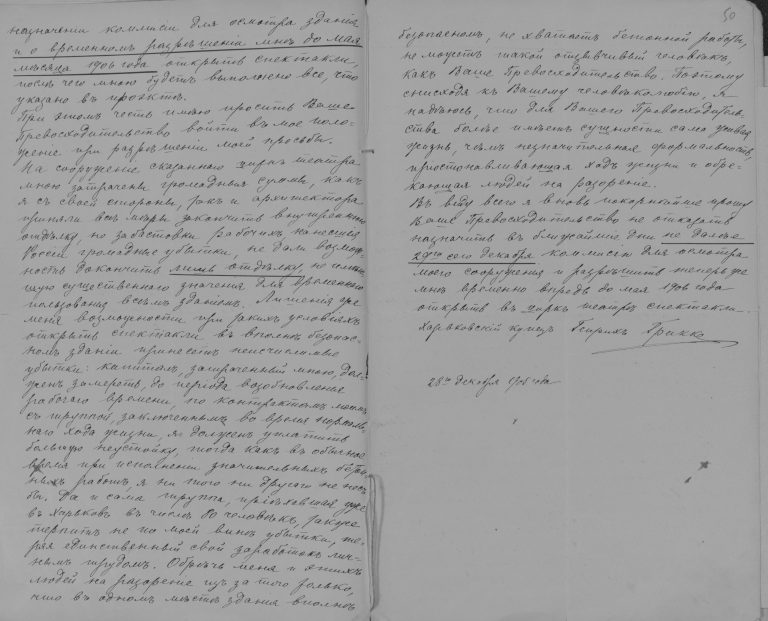 назначении коммисіи для осмотра зданія
и о временномъ разрѣшеніи мнѣ до мая
мѣсяца 1906 года открыть спектакли,
послѣ чего мною будетъ выполнено все, что
указано въ проэктѣ.
При этомъ честь имѣю просить Ваше
Превосходительство войти въ мое поло-
женіе при разрѣшеніи моей просьбы.
На сооруженіе сказаннаго цирка театра
мною затрачены громадныя суммы, какъ
я съ своей стороны, такъ и архитектора
приняли всѣ мѣры закончить внутреннюю
отдѣлку, но забастовки рабочихъ нанесшія
Россіи громадные убытки, не дали возмож-
ность докончить лишь отдѣлку, не имѣю-
щую существеннаго значенія для временнаго
пользованія всѣмъ зданіемъ. Лишеніе же
меня возможности при такихъ условіяхъ
открыть спектакли въ вполнѣ безопас-
номъ зданіи приноситъ неисчислимые
убытки: капиталъ, затраченный мною, дол-
женъ замереть, до періода возобновленія
рабочаго времени, по контрактамъ моимъ
съ труппой, заключеннымъ во время нормаль-
наго хода жизни, я долженъ уплатить
большую неустойку, тогда какъ въ обычное
время при исполненіи значительныхъ бетон-
ныхъ работъ, я ни того ни другаго не несъ
бы. Да и сама труппа, пріѣхавшая уже
въ Харьковъ въ числѣ 80 человѣкъ, также
терпитъ не по моей винѣ убытки, те-
ряя единственный свой заработокъ лич-
нымъ трудомъ. Обречь меня и этихъ
людей на разореніе изъ за того только,
что въ одномъ мѣстѣ зданія вполнѣ
50
безопасномъ, не хватаетъ бетонной работы,
не можетъ такой отзывчивый человѣкъ,
какъ Ваше Превосходительство. Поэтому
снисходя къ Вашему человѣколюбію, я
надѣюсь, что для Вашего Превосходитель-
ства болѣе имѣетъ сущности сама живая
жизнь, чѣмъ незначительная формальность,
пріостонавливающая ходъ жизни и обре-
кающая людей на разореніе.
Въ виду всего я вновь покорнѣйше прошу
Ваше Превосходительство не отказать
назначить въ ближайшіе дни не далѣе
29го сего декабря коммисію для осмотра
моего сооруженія и разрѣшить теперь же
мнѣ временно впредь до мая 1906 года
открыть въ циркѣ театрѣ спектакли.
Харьковскій купецъ Генрихъ Грикке
28го декабря 1905 года